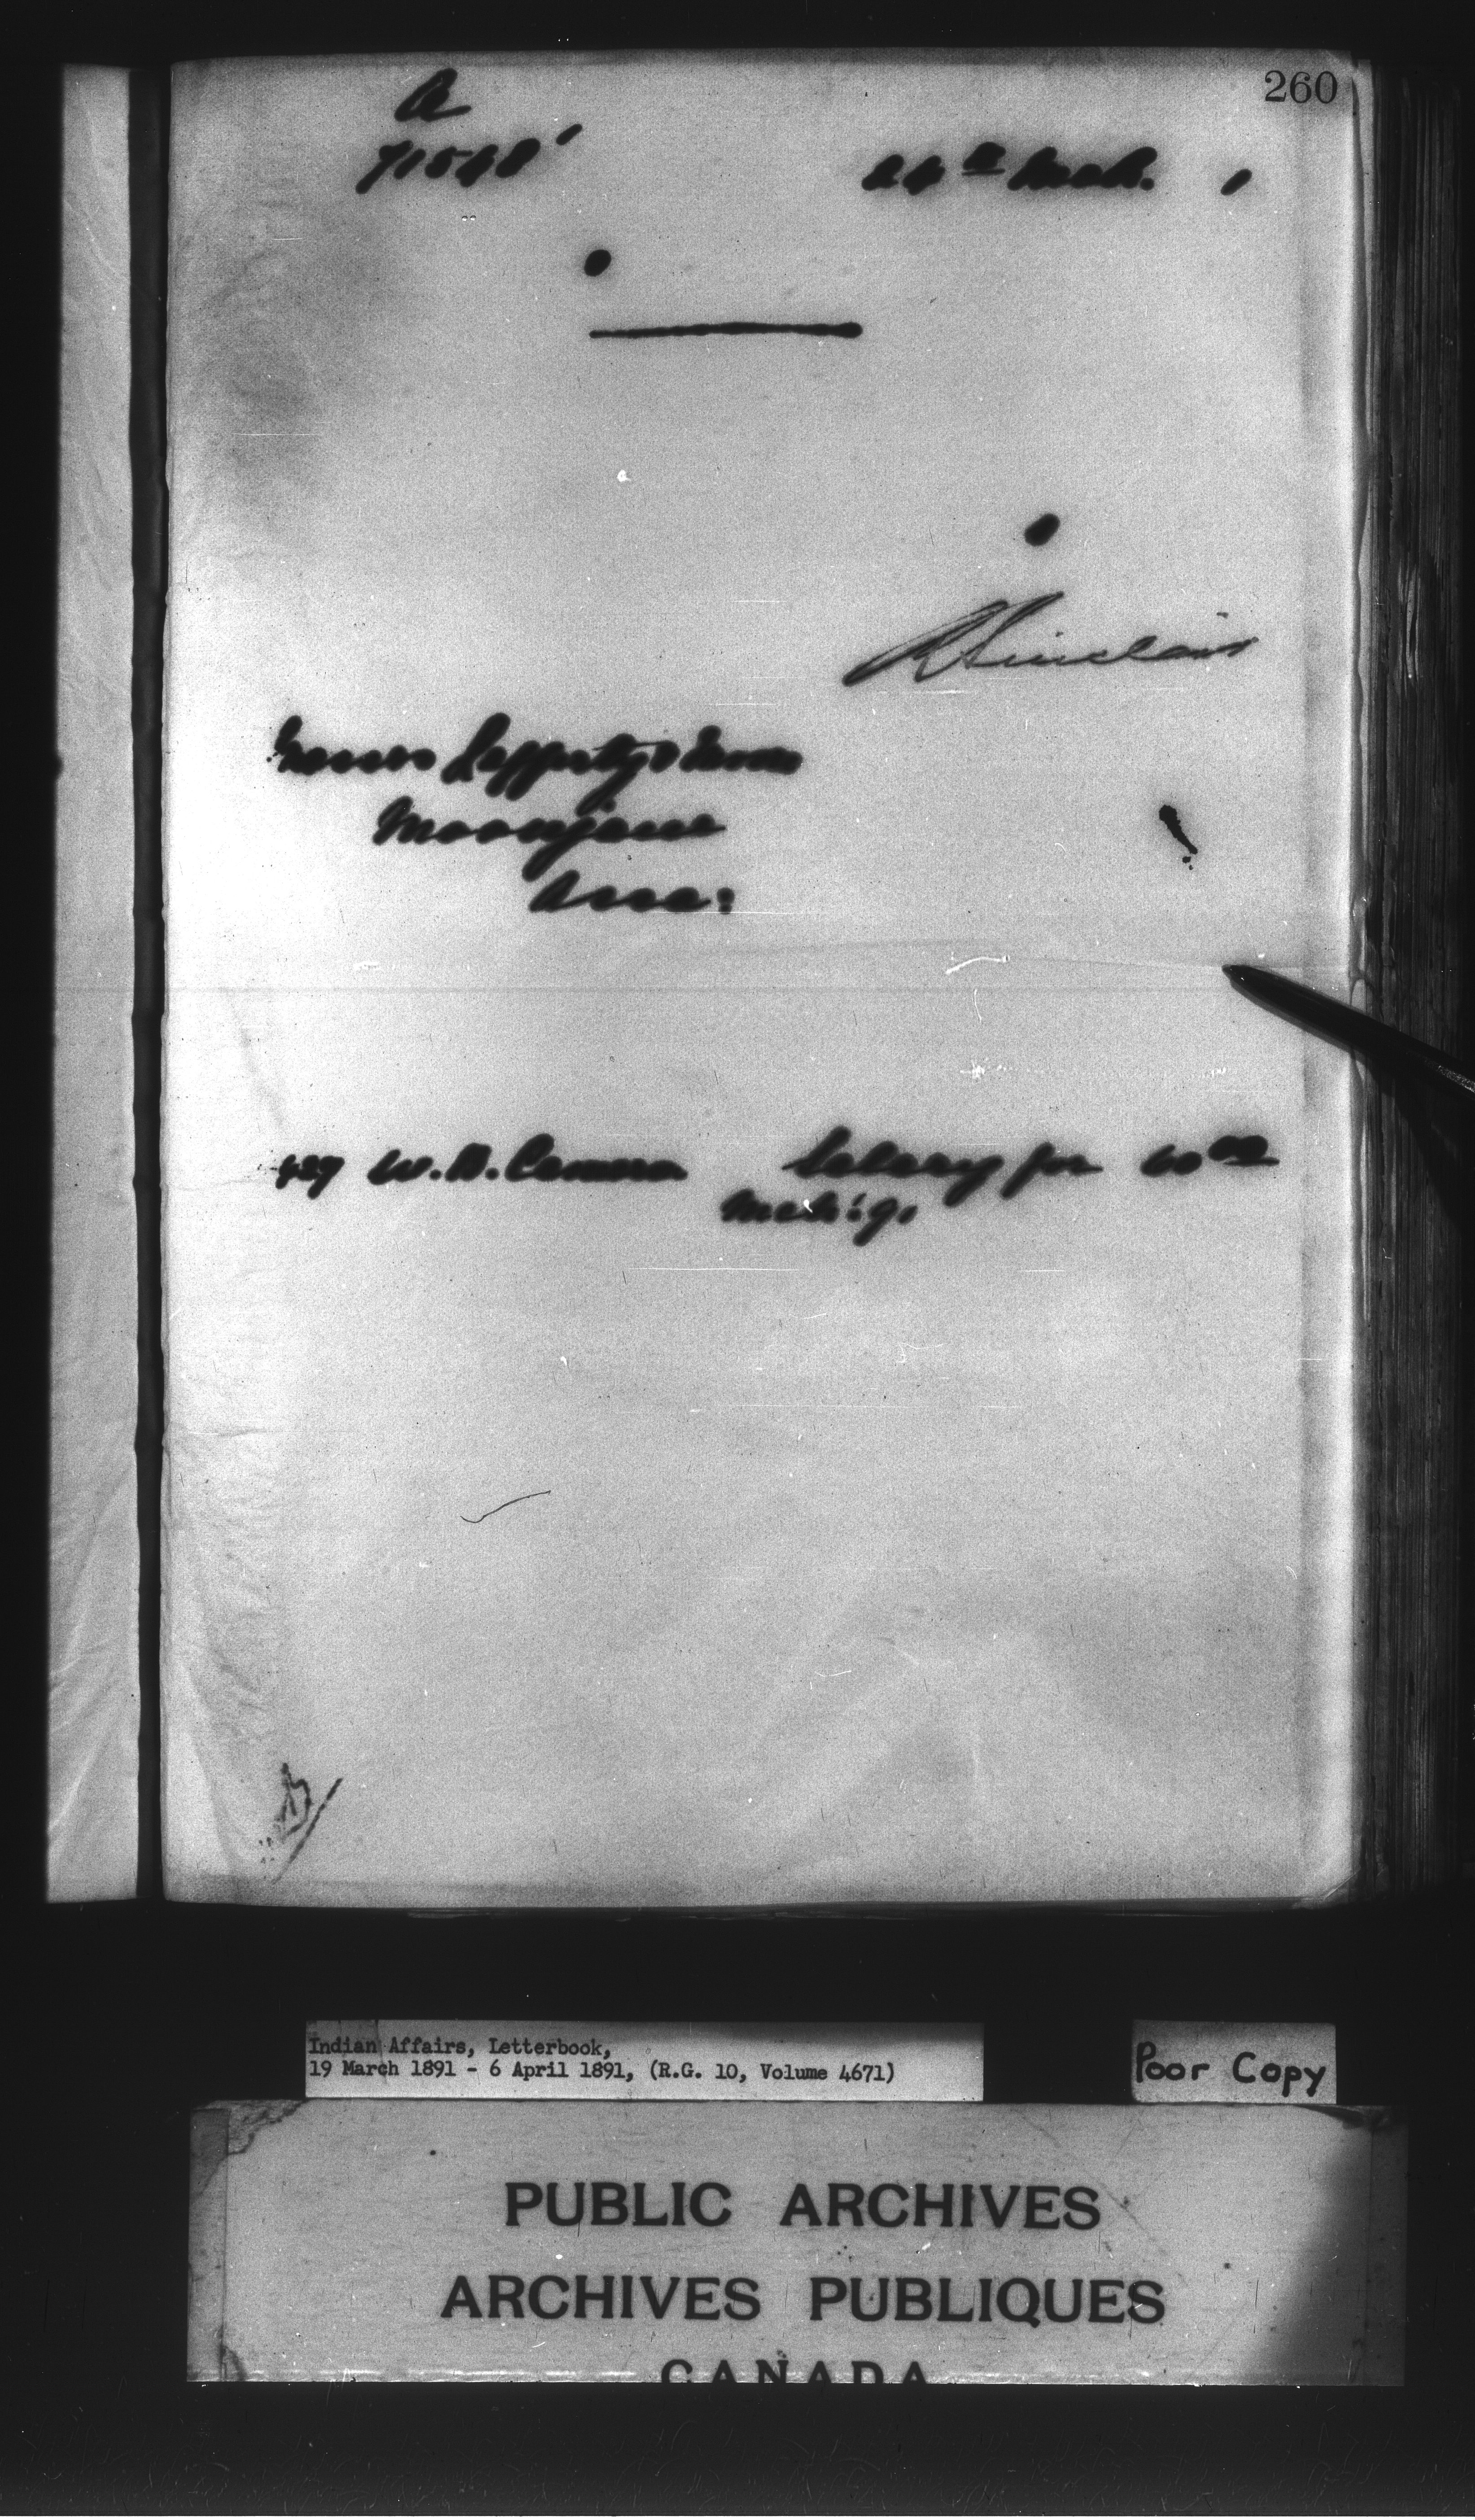 260
A
71548
24th Mch. 1
R Sinclair
Messrs Lafferty & Moore
Moosejaw
Assa:
429 W. B. Cameron Salary for 60 00
Mch: 91
Indian Affairs, Letterbook,
19 March 1891 - 6 April 1891, (R.G. 10, Volume 4671)
Poor Copy
PUBLIC ARCHIVES
ARCHIVES PUBLIQUES
CANADA